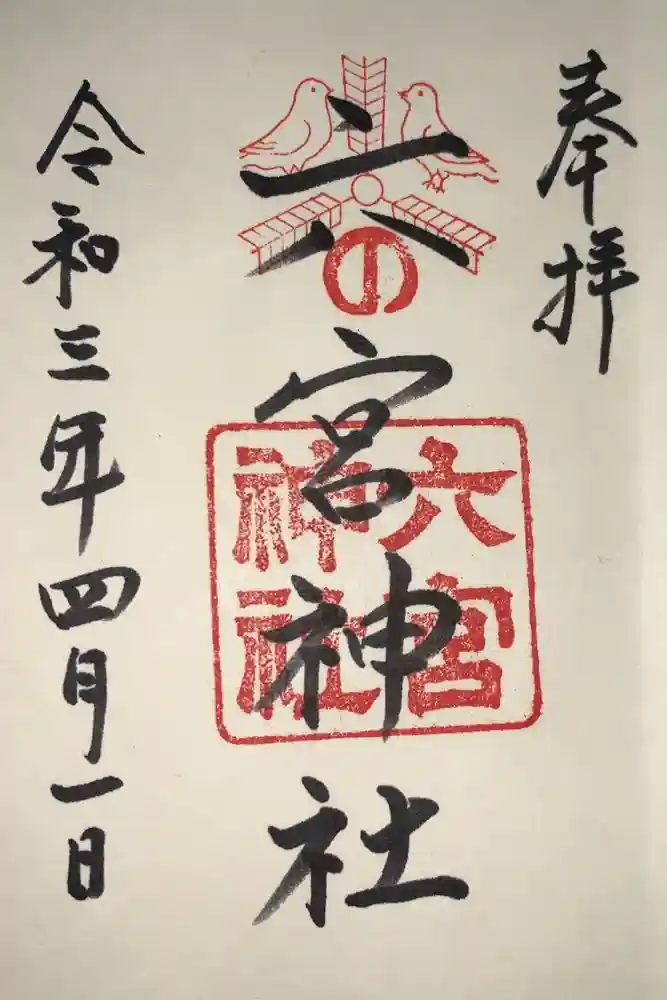 奉拝
六の宮神社
六宮
神社
令和三年四月一日